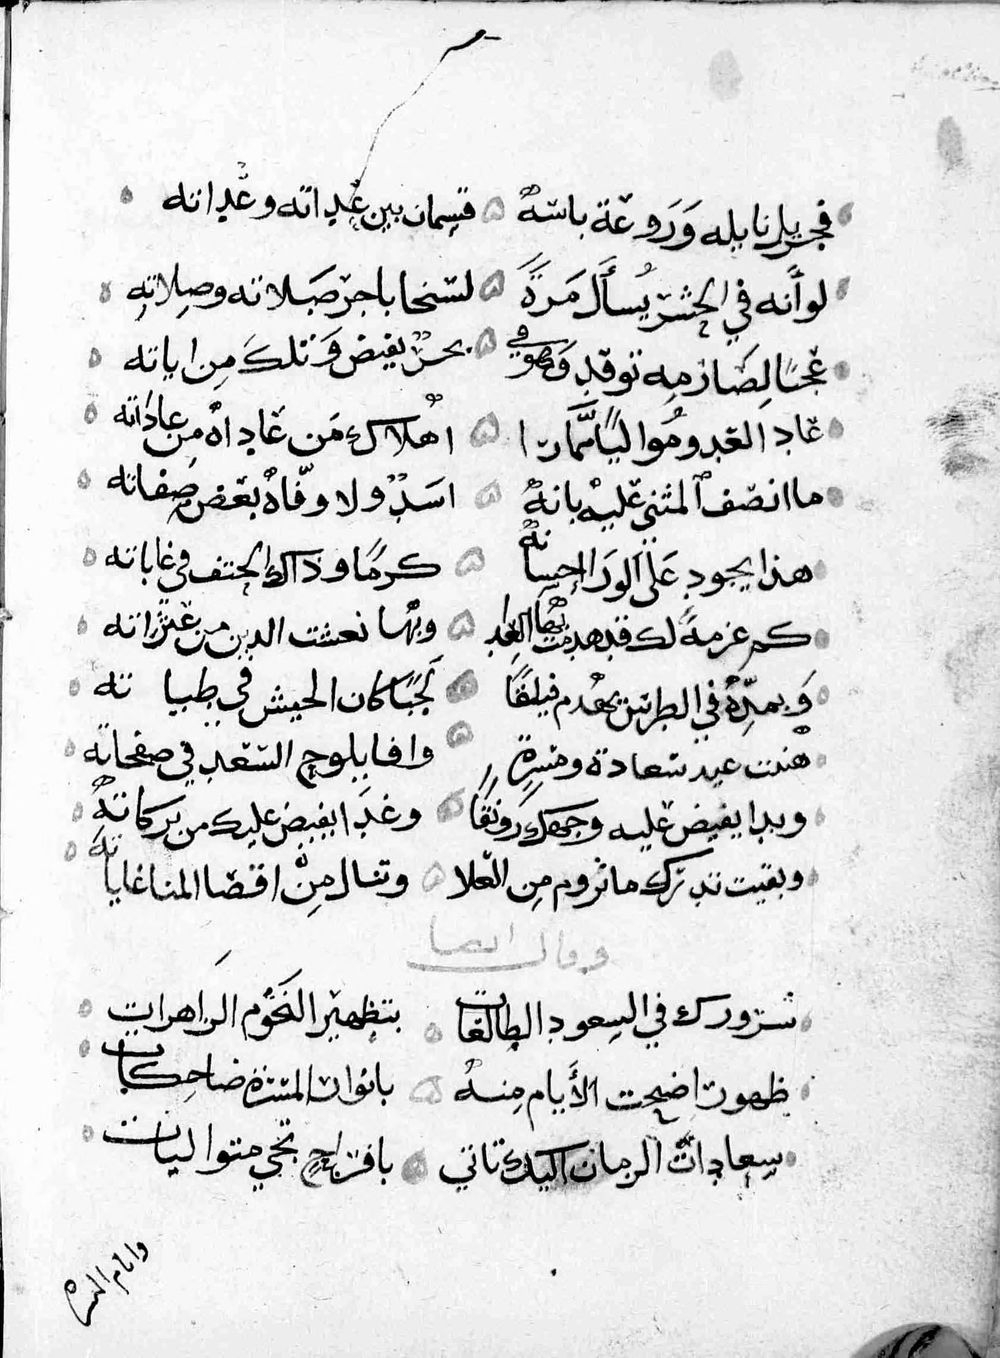 فجزيل نايله وَرَوعة باسهُ ۵ قسمان بين عداته وعداته
لو أنه في الحشر يُسأل مَرةً ۵ لسخا باجر صَلاته وصِلاتِه
عجبًا لِصَارمه توقد وَهو في ۵ بحرٌ يفيض وَتلك مِن اياته
عاد العدو ومُواليًا ۵ اهلاك مَن عَاداهُ مِن عاداته
ما انصف المثني عليهِ بانهُ ۵ اسدٌ ولا وفّاهُ بعض صِفاته
هذا يجود عَلى الورَا احسانهُ ۵ كرمًا وذاك الحتف في غاباته
كم عزمةً لك قد هدمت بها العدا ۵ وبها نعشت الدين من عثراته
وَبمدّهِ في الطرس يهدم فيلقًا ۵ لَجبًا كان الجيش في طيا ته
هنيت عيد سعادة ومسرةٍ ۵ وافا يلوح السّعد في صفحاته
وبدا يفيض عليه وجهك رَونقًا ۵ وغدَا يفيض عليك من بَركاتهُ
وبقيت تدرك ما تروم مِن العلا ۵ وتنال مِنْ اقصا المنا غاياتهُ
وقال ايضا
سرورك في السعود الطالعات ۵ بتظهير النجُوم الزاهرات
ظهورٌ اضحت الأيام مِنهُ ۵ بانوار المسرّة ضاحِكات
سعادات الزمان اليك تاتي ۵ بافراحٍ تجي متواليات
وايام المسره